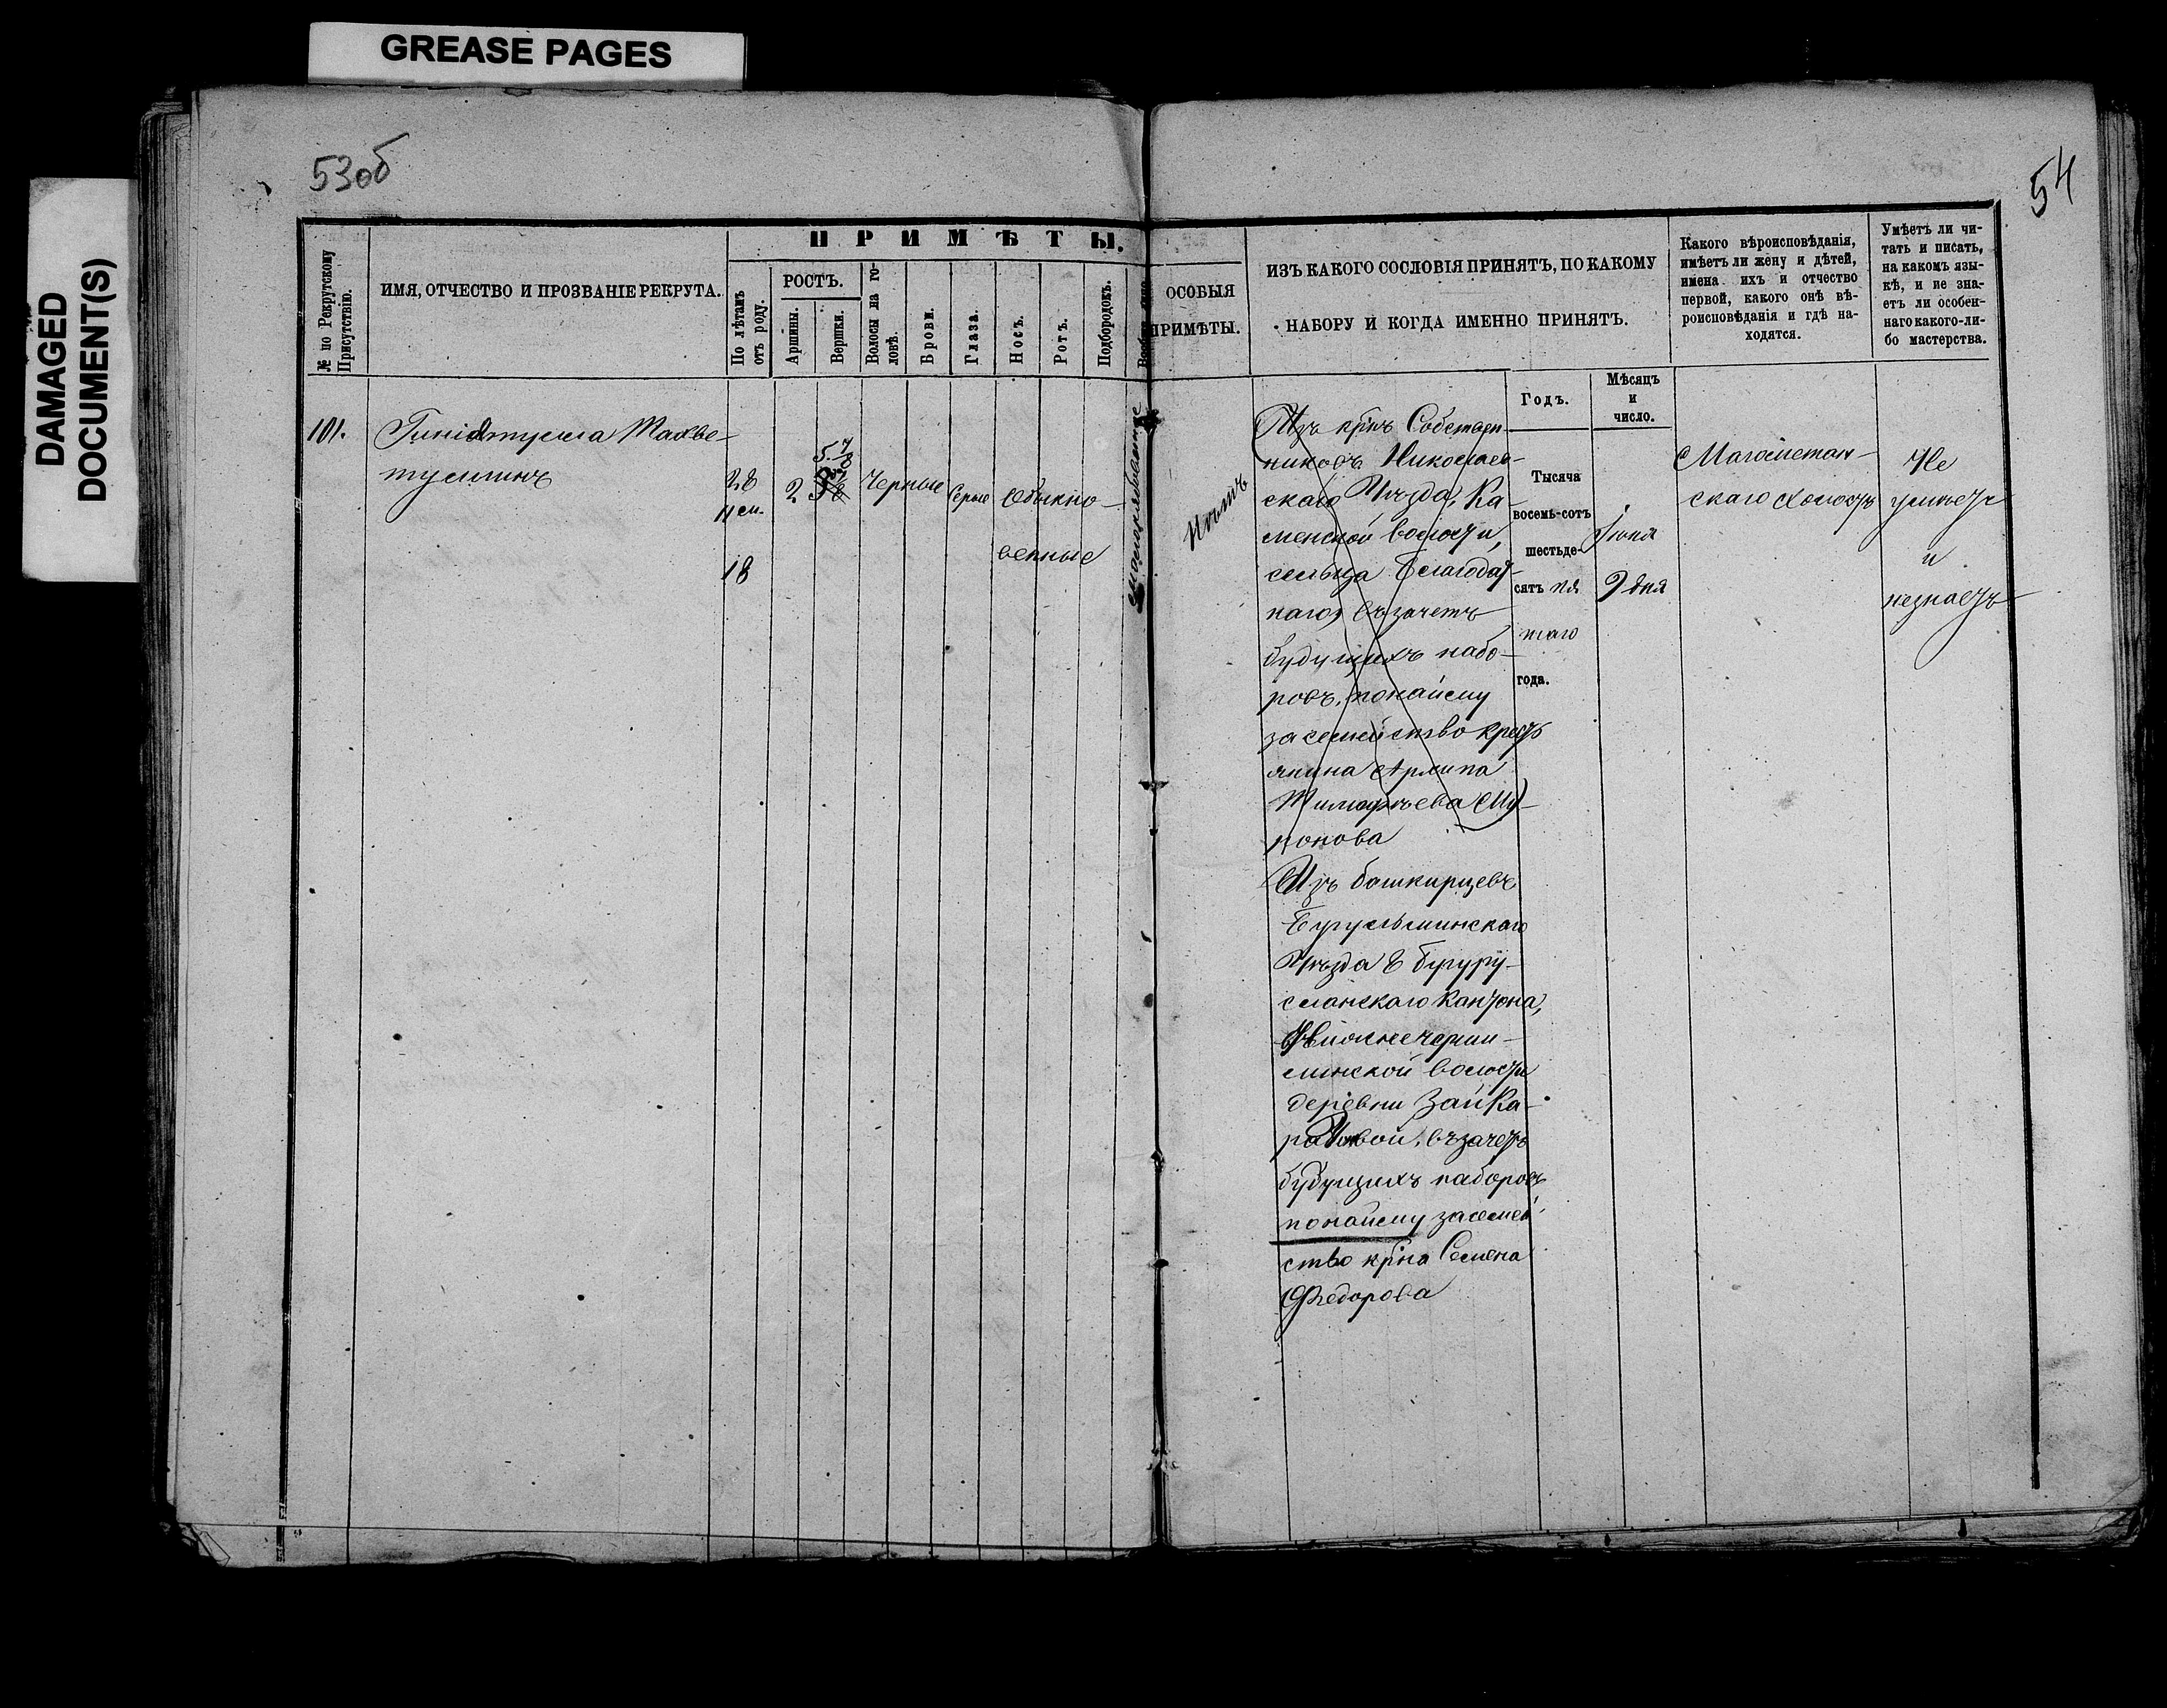 GREASE PAGES
DAMAGED
DOCUMENT(S)
53об
54
№ по Рекрутскому
Присутствію.
ИМЯ, ОТЧЕСТВО И ПРОЗВАНІЕ РЕКРУТА.
ПРИМѢТЫ.
По лѣтамъ
отъ роду.
РОСТЪ.
Аршины.
Вершки.
Волосы на го-
ловѣ.
Брови.
Глаза.
Носъ.
Ротъ.
Подбородокъ.
ОСОБЫЯ
ПРИМѢТЫ.
ИЗЪ КАКОГО СОСЛОВІЯ ПРИНЯТЪ, ПО КАКОМУ
НАБОРУ И КОГДА ИМЕННО ПРИНЯТЪ.
Какого вѣроисповѣданія,
имѣетъ ли жену и дѣтей,
имена ихъ и отчество
первой, какого онѣ вѣ-
роисповѣданія и гдѣ на-
ходятся.
Умѣетъ ли чи-
тать и писать,
на какомъ язы-
кѣ, и не зна-
етъ ли особен-
наго какого-ли-
бо мастерства.
Годъ.
Мѣсяцъ
и
число.
101.
28
18
2
5 7/8
Черные
Серые
Обыкно-
венные
смоляковатое
Нѣтъ
Изъ кр̃нъ Собствен-
никовъ Николаев-
скаго Уѣзда, Ка-
менской волости,
сельца Благодат-
наго, въ зачетъ
будущихъ набо-
ровъ, по найму
за семейство крест
янина Архипа
Тимофѣева
Изъ башкирцевъ
Бугульминскаго
Уѣзда 8 бугуру-
сланскаго Кантона,
минской волости
деревни Зай Ка-
ратовой, въ зачетъ
будущихъ наборовъ
по найму за семей
ство кр̃на Семена
Федорова
Тысяча
восемь-сотъ
шестьде-
сятъ пя
таго
года.
Іюня
9 дня
Магометан-
скаго Холостъ
Не
умѣетъ
и
незнаетъ